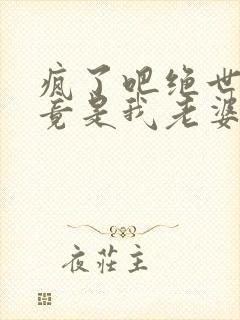 疯了吧绝世
竟是我老婆
夜庄主